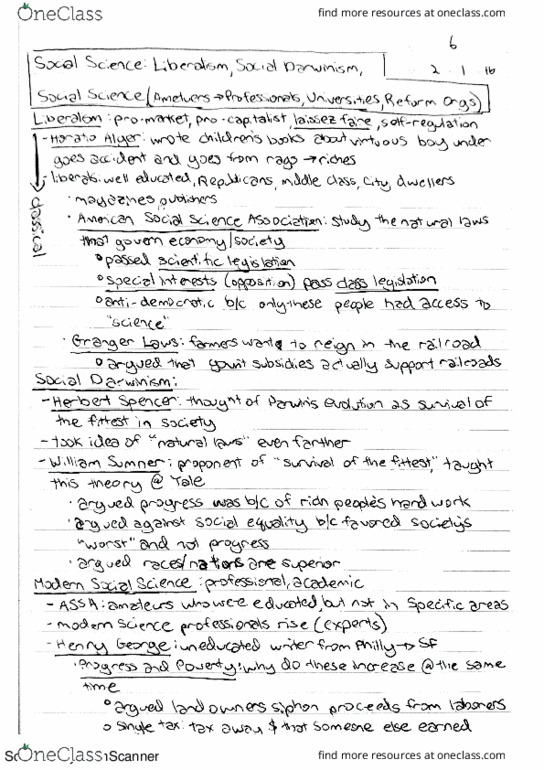 OneClass
find more resources at oneclass.com
6
Social Science: Liberalism, Social Darwinism,
2 1 16
Social Science (Ametuers → Professionals, Universities, Reform Orgs)
Liberalism: pro-market, pro-capitalist, laissez faire, self-regulation
- Horatio Alger: wrote children's books about virtuous boy under
goes accident and goes from rags → riches
- liberals: well educated, Republicans, middle class, city dwellers
classical
· magazines, publishers
· American Social Science Association: study the natural laws
that govern economy/society
° passed scientific legislation
° special interests (opposition) pass class legislation
° anti-democratic b/c only these people had access to
"science"
· Granger Laws: farmers want to reign in the railroad
° argued that gov't subsidies actually support railroads
Social Darwinism:
- Herbert Spencer: thought of Darwin's evolution as survival of
the fittest in society
- took idea of "natural laws" even farther
- William Sumner: proponent of "survival of the fittest," taught
this theory @ Yale
· argued progress was b/c of rich people's hard work
· argued against social equality b/c favored society's
"worst" and not progress
· argued races/nations are superior
Modern Social Science: professional, academic
- ASSA: amateurs who were educated, but not in specific areas
- modern science professionals rise (experts)
- Henry George: uneducated writer from Philly → SF
· Progress and Poverty: why do these increase @ the same
time
° argued land owners siphon proceeds from laborers
° single tax: tax away $ that someone else earned
Scanner
OneClass
find more resources at oneclass.com